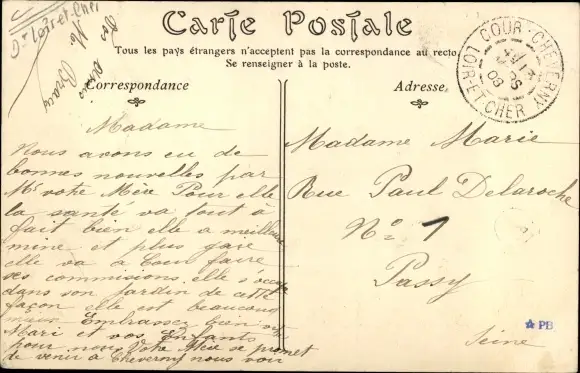 D-Loir-et-Cher
Carte Postale
Tous les pays étrangers n'acceptent pas la correspondance au recto
Se renseigner à la poste.
Correspondance
Adresse
COUR-CHEVERNY
LOIR-ET-CHER
Madame
Nous avons eu de
bonnes nouvelles par
Mr votre Mère Pour elle
la santé va tout à
fait bien elle a meilleure
mine et plus gaie
elle va à Cour faire
ses commisions elle s'occupe
dans son jardin de cette
façon elle est beaucoup
mieux Embrassez bien votre
Mari et vos Enfants
pour nous Votre Mère se promet
de venir à Cheverny nous voir
Madame Marie
Rue Paul Delaroche
No 7
Passy
Seine
PB